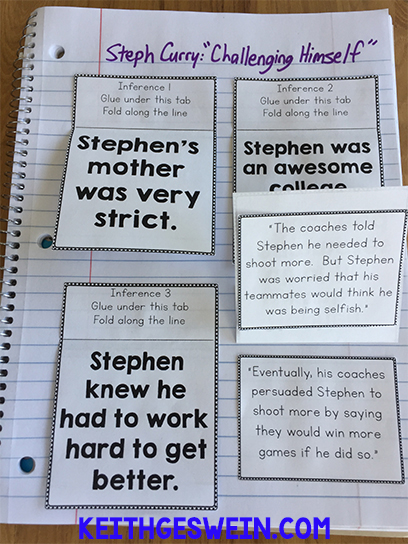 Steph Curry: "Challenging Himself"
Inference 1
Glue under this tab
Fold along the line
Stephen's
mother
was very
strict.
Inference 2
Glue under this tab
Fold along the line
Stephen was
an awesome
college
"The coaches told
Stephen he needed to
shoot more. But Stephen
was worried that his
teammates would think he
was being selfish."
Inference 3
Glue under this tab
Fold along the line
Stephen
knew he
had to work
hard to get
better.
"Eventually, his coaches
persuaded Stephen to
shoot more by saying
they would win more
games if he did so."
KEITHGESWEIN.COM